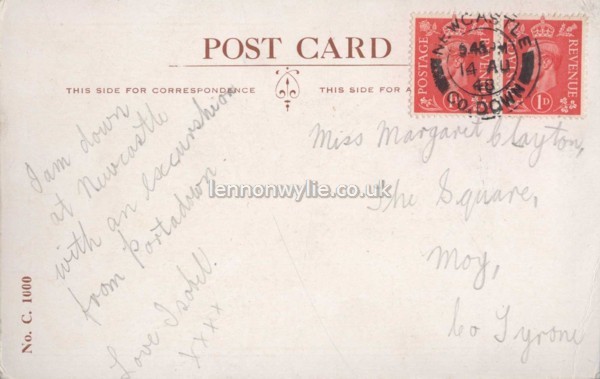 POST CARD
THIS SIDE FOR CORRESPONDENCE
THIS SIDE FOR A
POSTAGE
REVENUE
1D
NEWCASTLE
14 AU
48
CO. DOWN
I am down
at Newcastle
with an excurshion
from Portadown
Love Isobel.
xxxx
Miss Margaret Clayton,
The Square,
Moy,
Co Tyrone
No. C. 1000
lennonwylie.co.uk